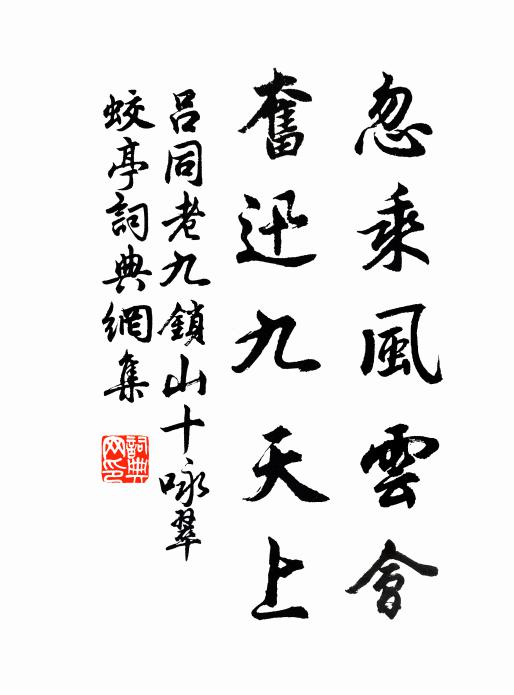 忽乘風雲會
奮迅九天上
呂同老九鎖山十咏翠
蛟亭詞典網集
詞典网印